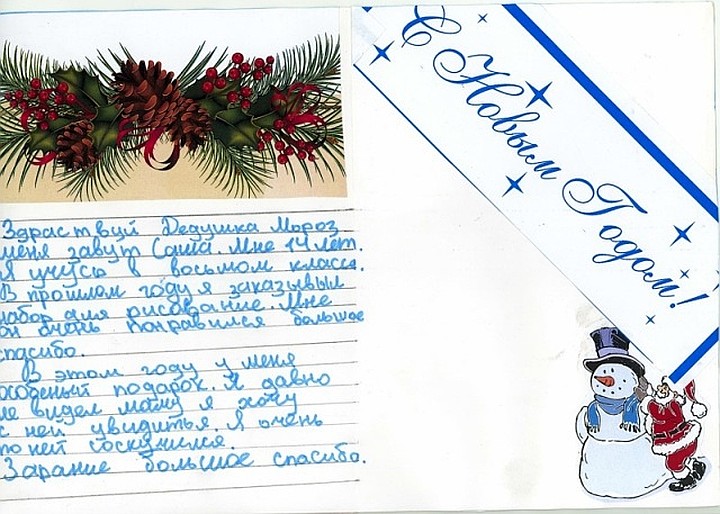 Здраствуй Дедушка Мороз
меня завут Саша. Мне 14 лет.
Я учусь в восьмом класса.
В прошлом году я заказывыл
набор для рисование. Мне
он очень понравился большое
спасибо.
В этом году у меня
особеный подарок. Я давно
не видел маму я хочу
с ней увидитья. Я очень
по ней соскучился.
Зарание большое спасибо.
С Новым Годом!